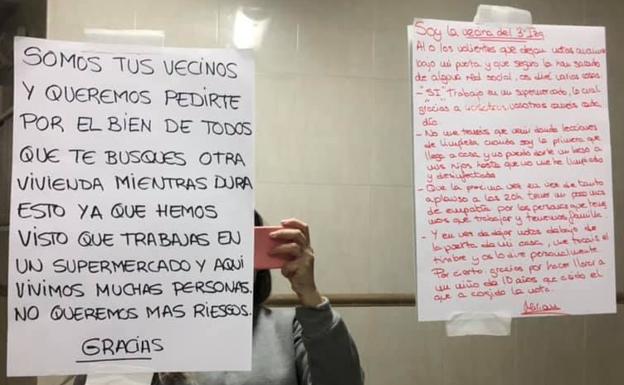 SOMOS TUS VECINOS
Y QUEREMOS PEDIRTE
POR EL BIEN DE TODOS
QUE TE BUSQUES OTRA
VIVIENDA MIENTRAS DURA
ESTO YA QUE HEMOS
VISTO QUE TRABAJAS EN
UN SUPERMERCADO Y AQUI
VIVIMOS MUCHAS PERSONAS.
NO QUEREMOS MAS RIESGOS.
GRACIAS
Soy la vecina del 3º Izq
Al o los valientes que dejan notas
bajo mi puerta y que seguro la han sacado
de alguna red social, os diré varias cosas.
- "SI" Trabajo en un supermercado, lo cual
gracias a nosotros vosotros coméis cada
día.
- No me tenéis que venir dando lecciones
de limpieza cuando soy la primera que
llega a casa y no puedo darle un beso a
mis hijos hasta que no me he limpiado
y desinfectado
- Que la próxima vez en vez de tanto
aplauso a las 20h tener un poco mas
de empatia por las personas que tene
mos que trabajar y tenemos familia.
- Y en vez de dejar notas debajo de
la puerta de mi casa, me tocais el
timbre y os lo dire personalmente
Por cierto, gracias por hacer llorar a
un niño de 10 años que a sido el
que a cogido la nota.
Miriam